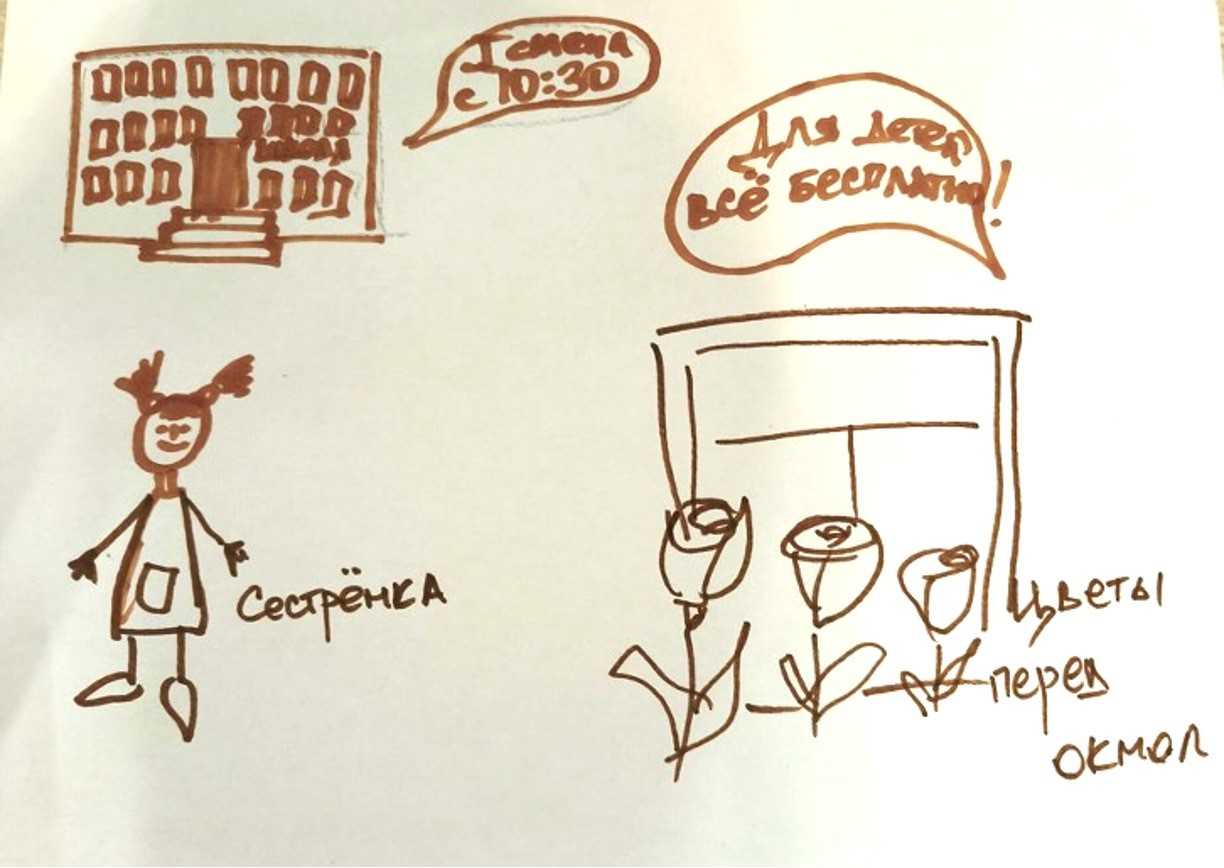 I смена
с 10:30
Для детей
всё бесплатно!
школа
Сестрёнка
Цветы
перед
окном